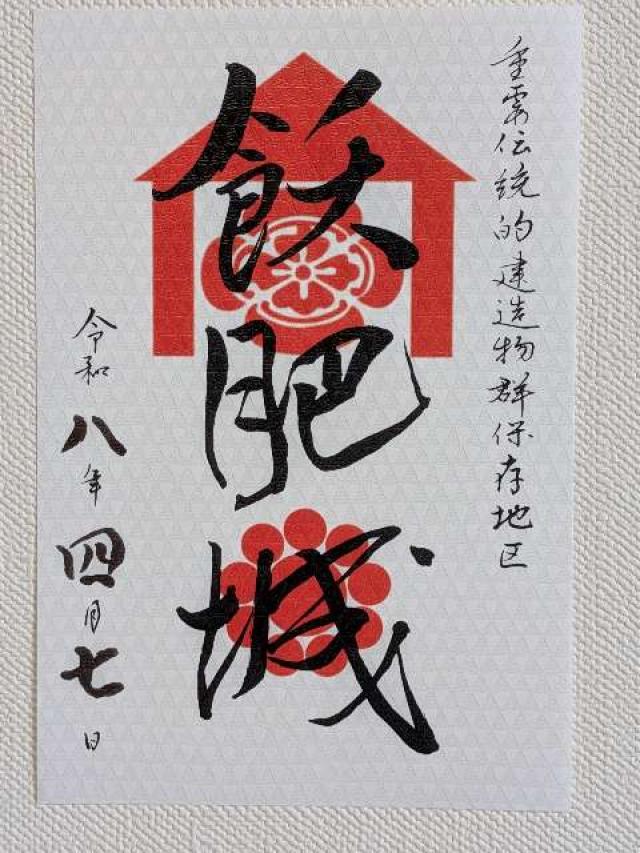 重要伝統的建造物群保存地区
飫肥城
令和八年四月七日